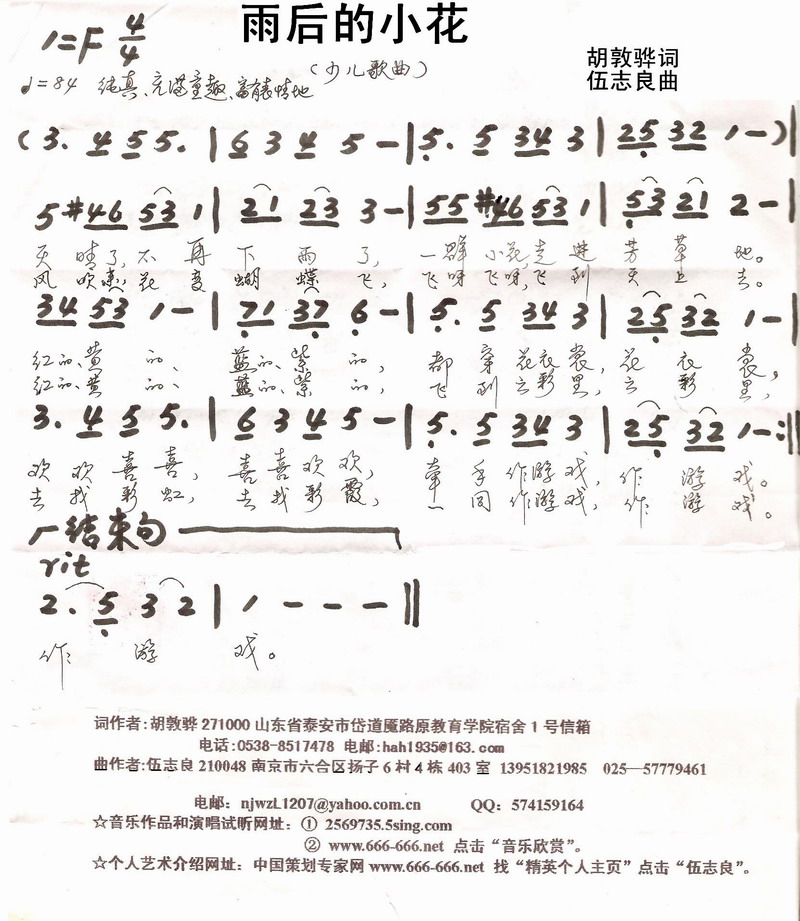 雨后的小花
1=F 4/4
(少儿歌曲)
胡敦骅词
伍志良曲
♩=84 纯真、充满童趣、富有表情地
(3. 4 5 5. | 6 3 4 5 - | 5. 5 34 3 | 25 32 1 - )|
5 #46 53 1 | 21 23 3 - | 55 #46 53 1 | 53 21 2 - |
天 晴了,不 再 下 雨 了, 一群 小花,走 进 芳 草 地。
风 吹来,花 变 蝴 蝶 飞, 飞呀 飞呀,飞 到 天 上 去。
34 53 1 - | 71 37 6 - | 5. 5 34 3 | 25 32 1 - |
红的、黄 的、 蓝的、紫 的, 都 穿 花衣 裳, 花 衣 裳,
红的、黄 的、 蓝的、紫 的, 飞 到 云彩 里, 云 彩 里,
3. 4 5 5. | 6 3 4 5 - | 5. 5 34 3 | 25 32 1 - :||
欢 欢 喜 喜, 喜 喜 欢 欢, 牵 手 作游 戏, 作 游 戏。
去 找 彩 虹, 去 找 彩 霞, 一 同 作游 戏, 作 游 戏。
结束句
rit
2. 5 3 2 | 1 - - - ||
作 游 戏。
词作者:胡敦骅 271000 山东省泰安市岱道庵路原教育学院宿舍 1 号信箱
电话:0538-8517478 电邮:hah1935@163.com
曲作者:伍志良 210048 南京市六合区扬子 6 村 4 栋 403 室 13951821985 025—57779461
电邮:njwzL1207@yahoo.com.cn QQ:574159164
☆音乐作品和演唱试听网址:① 2569735.5sing.com
② www.666-666.net 点击“音乐欣赏”。
☆个人艺术介绍网址:中国策划专家网 www.666-666.net 找“精英个人主页”点击“伍志良”。